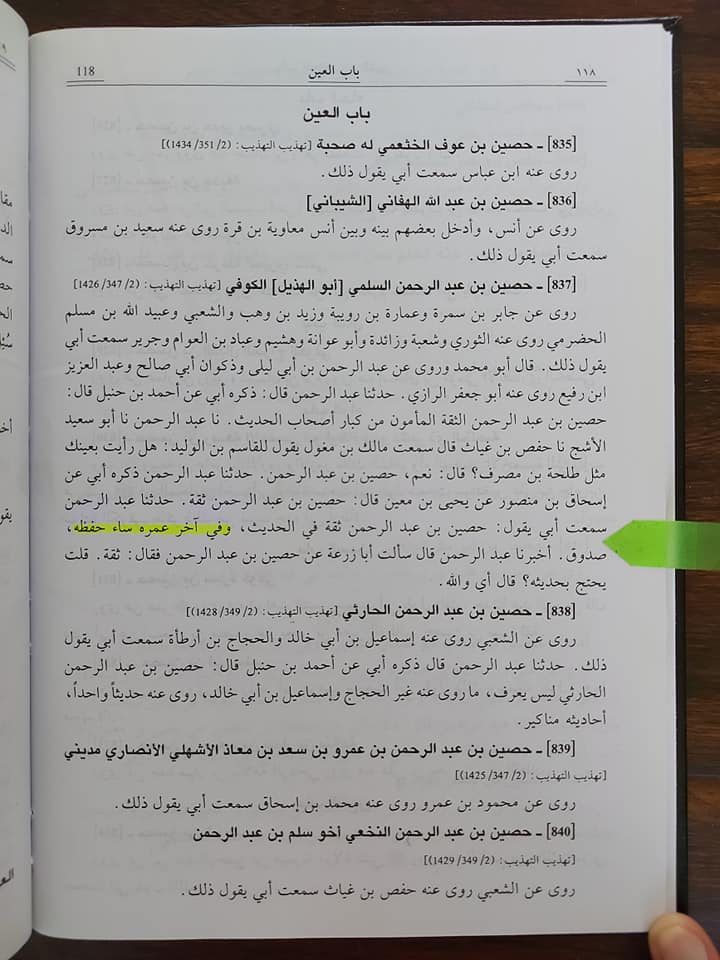 118 باب العين ١١٨
باب العين
[835] ـ حصين بن عوف الخثعمي له صحبة [تهذيب التهذيب: (2/ 351/ 1434)]
روى عنه ابن عباس سمعت أبي يقول ذلك.
[836] ـ حصين بن عبد الله الهفاني [الشيباني]
روى عن أنس، وأدخل بعضهم بينه وبين أنس معاوية بن قرة روى عنه سعيد بن مسروق
سمعت أبي يقول ذلك.
[837] ـ حصين بن عبد الرحمن السلمي [أبو الهذيل] الكوفي [تهذيب التهذيب: (2/ 347/ 1426)]
روى عن جابر بن سمرة وعمارة بن رويبة وزيد بن وهب والشعبي وعبيد الله بن مسلم
الحضرمي روى عنه الثوري وشعبة وزائدة وأبو عوانة وهشيم وعباد بن العوام وجرير سمعت أبي
يقول ذلك. قال أبو محمد وروى عن عبد الرحمن بن أبي ليلى وذكوان أبي صالح وعبد العزيز
ابن رفيع روى عنه أبو جعفر الرازي. حدثنا عبد الرحمن قال: ذكره أبي عن أحمد بن حنبل قال:
حصين بن عبد الرحمن الثقة المأمون من كبار أصحاب الحديث. نا عبد الرحمن نا أبو سعيد
الأشج نا حفص بن غياث قال سمعت مالك بن مغول يقول للقاسم بن الوليد: هل رأيت بعينك
مثل طلحة بن مصرف؟ قال: نعم، حصين بن عبد الرحمن. حدثنا عبد الرحمن ذكره أبي عن
إسحاق بن منصور عن يحيى بن معين قال: حصين بن عبد الرحمن ثقة. حدثنا عبد الرحمن
سمعت أبي يقول: حصين بن عبد الرحمن ثقة في الحديث، وفي آخر عمره ساء حفظه،
صدوق. أخبرنا عبد الرحمن قال سألت أبا زرعة عن حصين بن عبد الرحمن فقال: ثقة. قلت
يحتج بحديثه؟ قال أي والله.
[838] ـ حصين بن عبد الرحمن الحارثي [تهذيب التهذيب: (2/ 349/ 1428)]
روى عن الشعبي روى عنه إسماعيل بن أبي خالد والحجاج بن أرطأة سمعت أبي يقول
ذلك. حدثنا عبد الرحمن قال ذكره أبي عن أحمد بن حنبل قال: حصين بن عبد الرحمن
الحارثي ليس يعرف، ما روى عنه غير الحجاج وإسماعيل بن أبي خالد، روى عنه حديثاً واحداً،
أحاديثه مناكير.
[839] ـ حصين بن عبد الرحمن بن عمرو بن سعد بن معاذ الأشهلي الأنصاري مديني
[تهذيب التهذيب: (2/ 347/ 1425)]
روى عن محمود بن عمرو روى عنه محمد بن إسحاق سمعت أبي يقول ذلك.
[840] ـ حصين بن عبد الرحمن النخعي أخو سلم بن عبد الرحمن
[تهذيب التهذيب: (2/ 349/ 1429)]
روى عن الشعبي روى عنه حفص بن غياث سمعت أبي يقول ذلك.